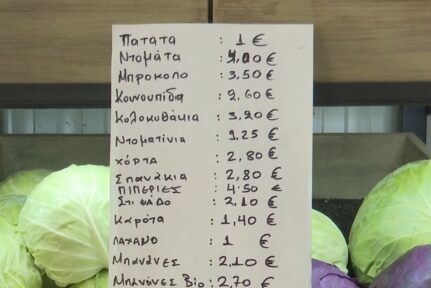 Πατατα : 1 €
Ντομάτα : 4,00 €
Μπροκολο : 3,50 €
Κουνουπίδια : 2,60 €
Κολοκυθάκια : 3,20 €
Ντοματίνια : 9,25 €
χόρτα : 2,80 €
Σπανάκια : 2,80 €
ΠΙΠΕΡΙΕΣ : 4.50 €
ΣτιΦΑΔΟ : 2,10 €
Καρότα : 1,40 €
ΛΑΧΑΝΟ : 1 €
Μπανάνες : 2,10 €
Μπανάνες Βio : 2,70 €